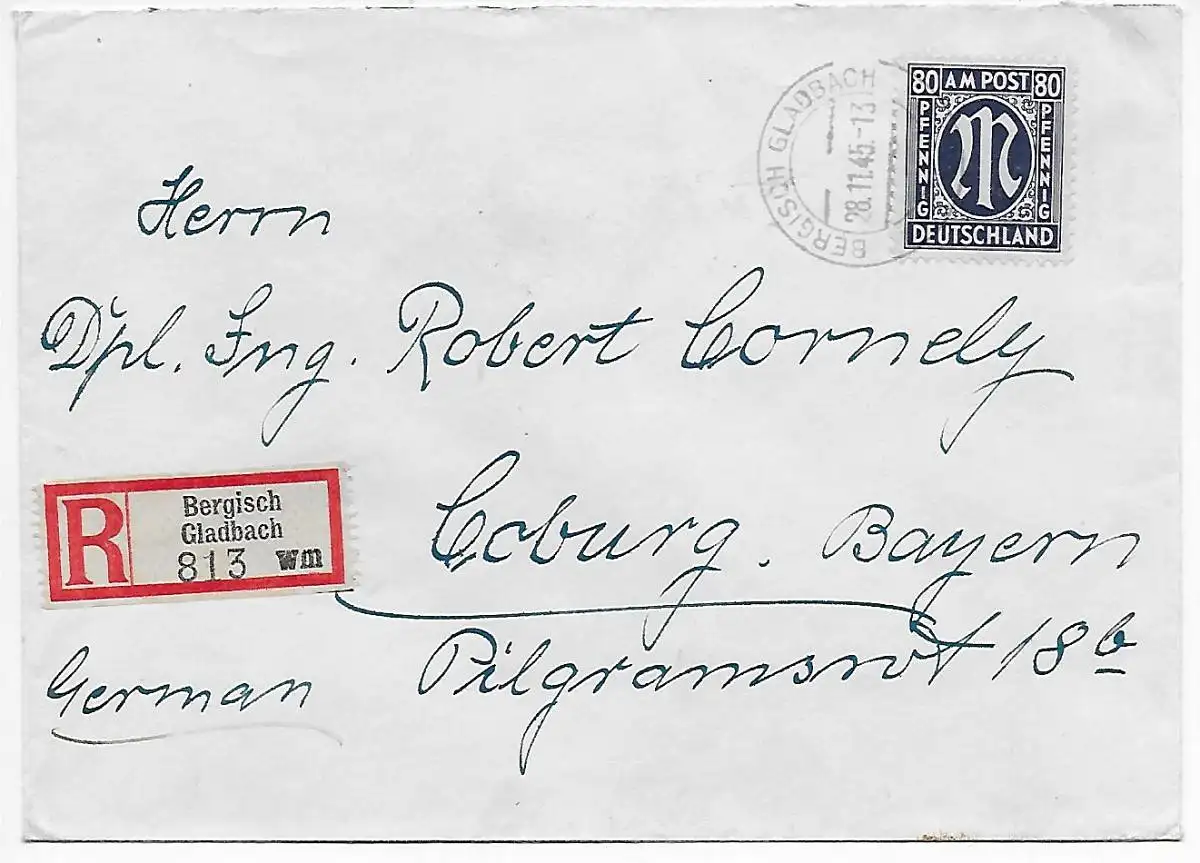 BERGISCH GLADBACH
28.11.45.-13
80 AM POST 80
PFENNIG PFENNIG
M
DEUTSCHLAND
Herrn
Dpl. Ing. Robert Cornely
R Bergisch
Gladbach
813 wm
Coburg. Bayern
German
Pilgramsrot 18b